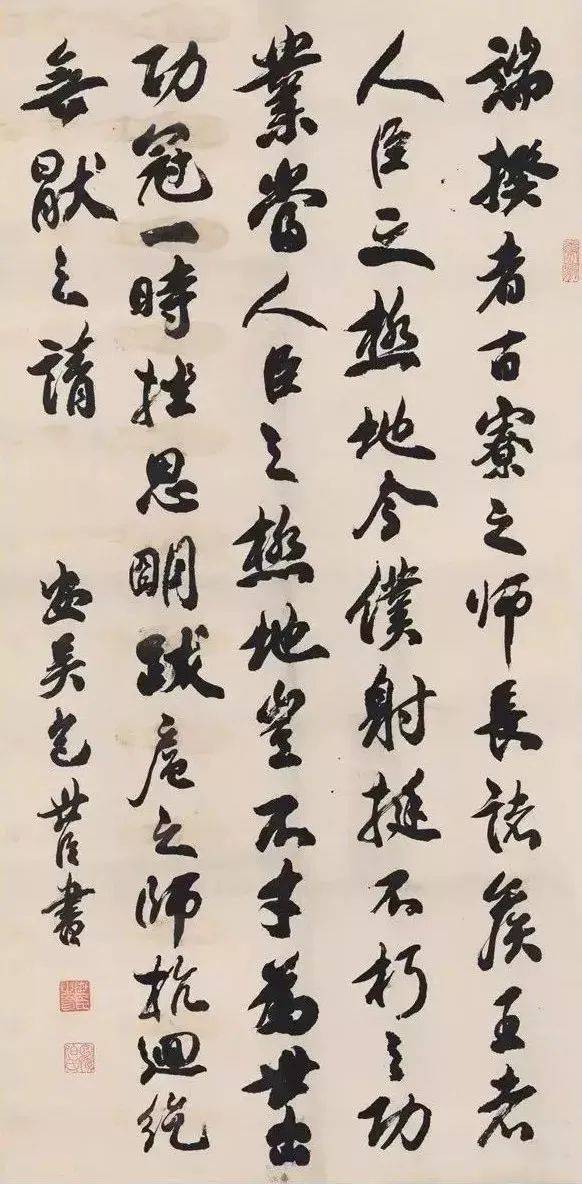 端揆者百寮之师長諸侯王者
人臣之極地今僕射挺不朽之功
業當人臣之極地豈不才為世出
功冠一時挫思明跋扈之師抗迴紇
無猒之請
安吳包世臣書